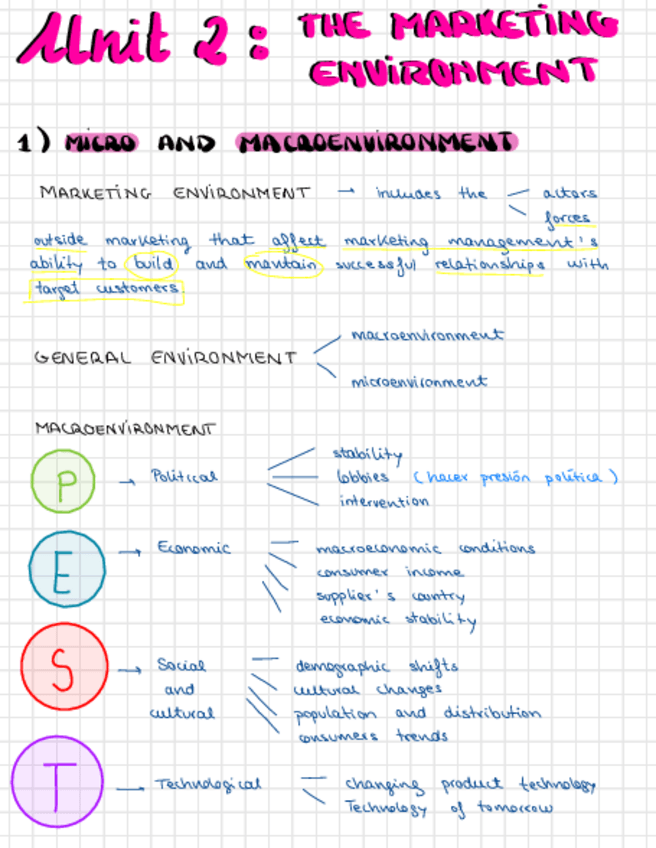 Unit 2: THE MARKETING
ENVIRONMENT
1) MICRO AND MACROENVIRONMENT
MARKETING ENVIRONMENT → includes the actors
forces
outside marketing that affect marketing management's
ability to build and mantain successful relationships with
target customers.
GENERAL ENVIRONMENT
macroenvironment
microenvironment
MACROENVIRONMENT
P → Political
stability
lobbies (hacer presión política)
intervention
E → Economic
macroeconomic conditions
consumer income
supplier's country
economic stability
S → Social
and
cultural
demographic shifts
cultural changes
population and distribution
consumers trends
T → Technological
changing product technology
Technology of tomorrow